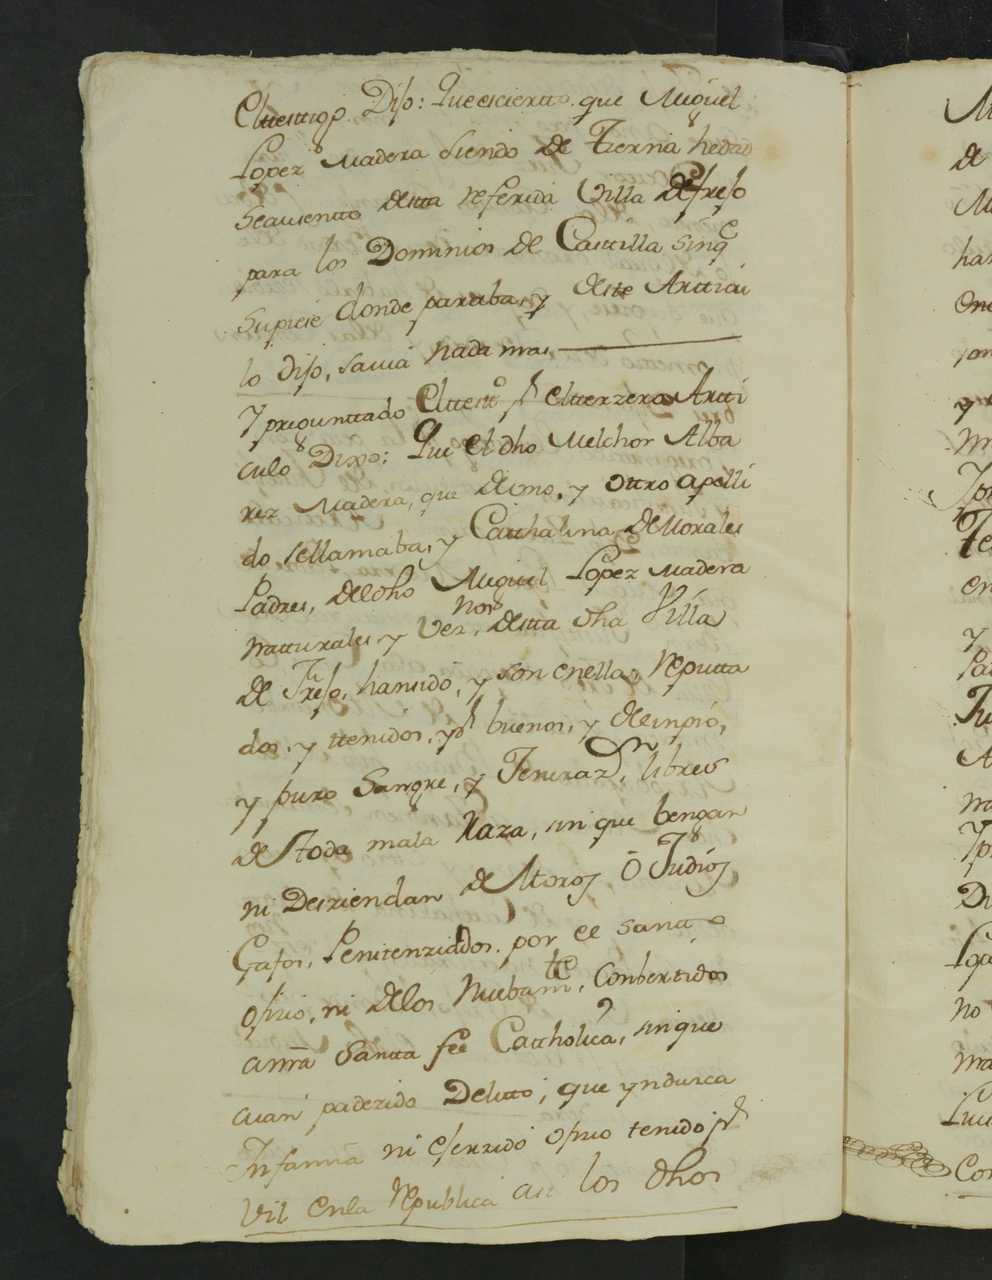 Eltesttigo Dijo: Que es cierto que Miguel
Lopez Madera siendo de Tierna hedad
se ausentto destta referida Villa de frejo
para los Dominios de Casttilla sin q.e
supiese donde paraba, y deste Artticu
lo dijo, savia nada mas
Y preguntado Elttestt.o p.r eltterzero Artti
culo Dixo: Que el dho Melchor Alba
rez Madera, que de uno, y ottro apelli
do sellamaba, y Catthalina de Morales
Padres, del dho Miguel Lopez Madera
natturales y Vez.nos destta dha Villa
de Frejo, han sido, y son enella, Reputta
dos, y ttenidos, p.r buenos, y delinpio,
y puro Sangre, y Jeneraz.on libres
de ttoda mala Raza, sin que bengan
ni Desziendan de Moros ô Judios
Gafos, Penitenziados por el Santto
ofisio, ni delos Nuebam.tte Conbertidos
a nrã Santta feé Catthólica, sin que
aian padezido Delitto, que ynduzca
Infamia ni ejerzido ofisio tenido p.r
Vil enla Republica asi los dhos
M
de
M
han
y
Y
Te
en
y
Pa
A
Y
Di
Lope
no
ma
Con